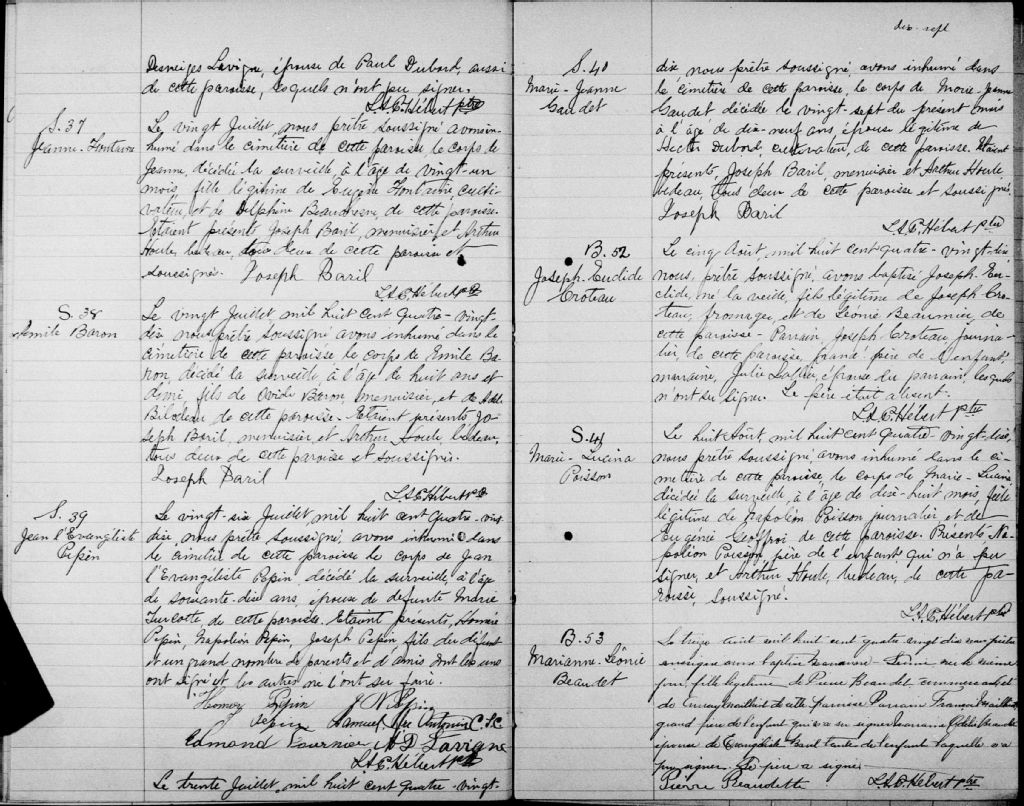 Desneiges Lavigne, épouse de Paul Dubord, aussi
de cette paroisse, lesquels n'ont pu signer.
L.A.E. Hébert ptre
S. 37
Jeanne
Le vingt Juillet, nous prêtre soussigné avons in-
humé dans le cimetière de cette paroisse le corps de
Jeanne, décédée la surveille à l'âge de vingt-un
mois, fille légitime de Eugène culti-
vateur, et de Delphine de cette paroisse.
Etaient présents Joseph Baril, menuisier, et Arthur
Houle, bedeau, tous deux de cette paroisse et
soussignés. Joseph Baril
L.A.E. Hébert ptre
S. 38
Emile Baron
Le vingt Juillet mil huit cent quatre-vingt-
dix nous prêtre soussigné avons inhumé dans le
cimetière de cette paroisse le corps de Emile Ba-
ron, décédé la surveille à l'âge de huit ans et
demi, fils de Ovide Baron, menuisier, et de
Bilodeau de cette paroisse. Etaient présents Jo-
seph Baril, menuisier et Arthur Houle bedeau,
tous deux de cette paroisse et soussignés.
Joseph Baril
L.A.E. Hébert ptre
S. 39
Jean l'Evangéliste
Pepin
Le vingt-six Juillet mil huit cent quatre-vingt-
dix nous prêtre soussigné, avons inhumé dans
le cimetière de cette paroisse le corps de Jean
l'Evangéliste Pepin, décédé la surveille, à l'âge
de soixante-dix ans, époux de defunte Marie
Turcotte, de cette paroisse. Etaient présents, Homère
Pepin, Napoléon Pepin, Joseph Pepin fils du défunt
et un grand nombre de parents et d'amis dont les uns
ont signé et les autres ne l'ont su faire.
Pepin J N Pepin
Pepin Samuel C.S.C.
Edmond Fournier A D Lavigne
L.A.E. Hébert ptre
Le trente Juillet, mil huit cent quatre-vingt-
dix-sept
S. 40
Marie-Jeanne
Gaudet
dix nous prêtre soussigné, avons inhumé dans
le cimetière de cette paroisse, le corps de Marie-Jeanne
Gaudet décédée le vingt-sept du présent mois
à l'âge de dix-neuf ans, épouse légitime de
Hector Dubord, cultivateur, de cette paroisse. Etaient
présents, Joseph Baril, menuisier et Arthur Houle,
bedeau, tous deux de cette paroisse et soussignés.
Joseph Baril
L.A.E. Hébert ptre
B. 52
Joseph-Euclide
Croteau
Le cinq Août, mil huit cent quatre-vingt-dix
nous, prêtre soussigné avons baptisé Joseph-Eu-
clide, né la veille, fils légitime de Joseph Cro-
teau, fromager, et de Léonie Beaumier, de
cette paroisse. Parrain, Joseph Croteau, journa-
lier, de cette paroisse, grand-père de l'enfant;
marraine, Julie épouse du parrain, lesquels
n'ont su signer. Le père était absent.
L.A.E. Hébert ptre
S. 41
Marie-Lucina
Poisson
Le huit Août, mil huit cent quatre-vingt-dix,
nous prêtre soussigné, avons inhumé dans le ci-
metière de cette paroisse, le corps de Marie-Lucina
décédée la surveille, à l'âge de dix-huit mois, fille
légitime de Napoléon Poisson journalier et de
Eugénie Geoffroi de cette paroisse. Présents, Na-
poléon Poisson père de l'enfant qui n'a pu
signer, et Arthur Houle, bedeau, de cette pa-
roisse, soussigné.
L.A.E. Hébert ptre
B. 53
Marianne-Léonie
Beaudet
Le treize août mil huit cent quatre vingt dix nous prêtre
soussigné avons baptisé Marianne-Léonie née le même
jour, fille légitime de Pierre Beaudet commerçant et
de de cette paroisse Parrain François
grand père de l'enfant qui n'a su signer marraine
épouse de Evangéliste tante de l'enfant laquelle n'a
pu signer. Le père a signé
Pierre Beaudette L.A.E. Hébert ptre